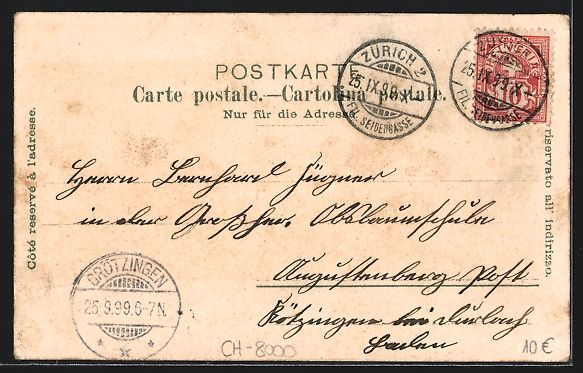 POSTKARTE
Carte postale.—Cartolina postale.
Nur für die Adresse
Côté reservé à l'adresse.
riservato all' indirizzo.
ZÜRICH 2
25.IX.99.X–
FIL. SEIDENGASSE
ZÜRICH
25.IX.99.X–
FIL. SEIDENGASSE
HELVETIA
Herrn Bernhard
in der Großher. Obstbaumschule
Augustenberg Post
Grötzingen bei Durlach
Baden
GRÖTZINGEN
25.9.99.6-7N.
CH-8000
10 €